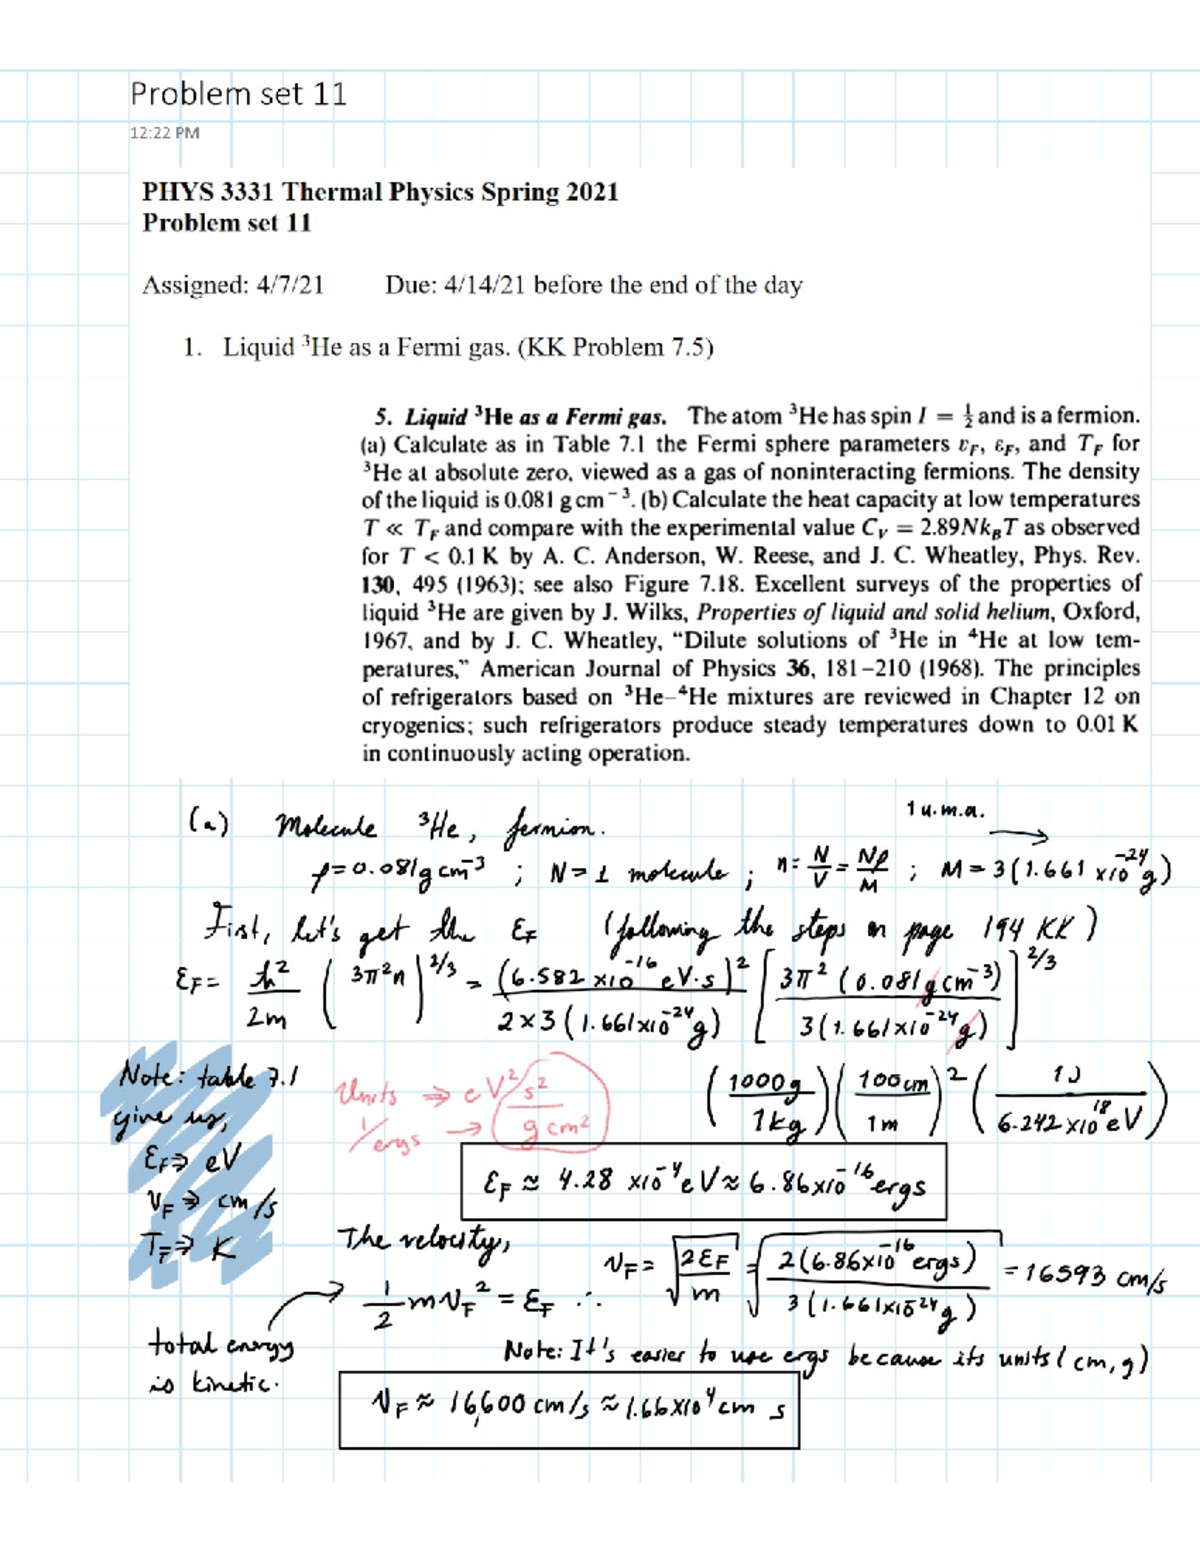 Problem set 11
12:22 PM
PHYS 3331 Thermal Physics Spring 2021
Problem set 11
Assigned: 4/7/21 Due: 4/14/21 before the end of the day
1. Liquid ³He as a Fermi gas. (KK Problem 7.5)
5. Liquid ³He as a Fermi gas. The atom ³He has spin I = ½ and is a fermion.
(a) Calculate as in Table 7.1 the Fermi sphere parameters v_F, ε_F, and T_F for
³He at absolute zero, viewed as a gas of noninteracting fermions. The density
of the liquid is 0.081 g cm⁻³. (b) Calculate the heat capacity at low temperatures
T ≪ T_F and compare with the experimental value C_V = 2.89Nk_BT as observed
for T < 0.1 K by A. C. Anderson, W. Reese, and J. C. Wheatley, Phys. Rev.
130, 495 (1963); see also Figure 7.18. Excellent surveys of the properties of
liquid ³He are given by J. Wilks, Properties of liquid and solid helium, Oxford,
1967, and by J. C. Wheatley, "Dilute solutions of ³He in ⁴He at low tem-
peratures," American Journal of Physics 36, 181–210 (1968). The principles
of refrigerators based on ³He–⁴He mixtures are reviewed in Chapter 12 on
cryogenics; such refrigerators produce steady temperatures down to 0.01 K
in continuously acting operation.
1 u.m.a. →
(a) Molecule ³He, fermion.
ρ=0.081g cm⁻³ ; N=1 molecule ; n= N/V = Nρ/M ; M=3(1.661 x10⁻²⁴g)
First, let's get the ε_F (following the steps on page 194 KK)
ε_F= ħ²/2m (3π²n)^2/3 = (6.582 x10⁻¹⁶ eV·s)² / 2x3(1.661x10⁻²⁴g) [3π²(0.081 g cm⁻³) / 3(1.661x10⁻²⁴g)]^2/3
(1000g/1kg)(100cm/1m)²(1J/6.242 x10¹⁸eV)
Note: table 7.1
give us,
ε_F⇒ eV
v_F⇒ cm/s
T_F⇒ K
Units ⇒ eV² s²
1/ergs → g cm²
ε_F ≈ 4.28 x10⁻⁴eV ≈ 6.86x10⁻¹⁶ergs
The velocity,
v_F= √(2ε_F/m) = √(2(6.86x10⁻¹⁶ergs) / 3(1.661x10⁻²⁴g)) = 16593 cm/s
→ ½mv_F² = ε_F ∴
total energy
is kinetic.
Note: It's easier to use ergs because its units (cm, g)
v_F ≈ 16,600 cm/s ≈ 1.66x10⁴cm s